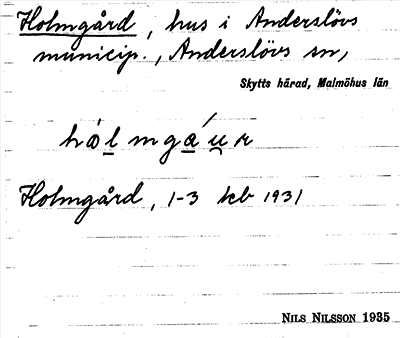 Holmgård, hus i Anderslövs
municip., Anderslövs sn,
Skytts härad, Malmöhus län
hålmgáur
Holmgård, 1-3 kcb 1931
NILS NILSSON 1935